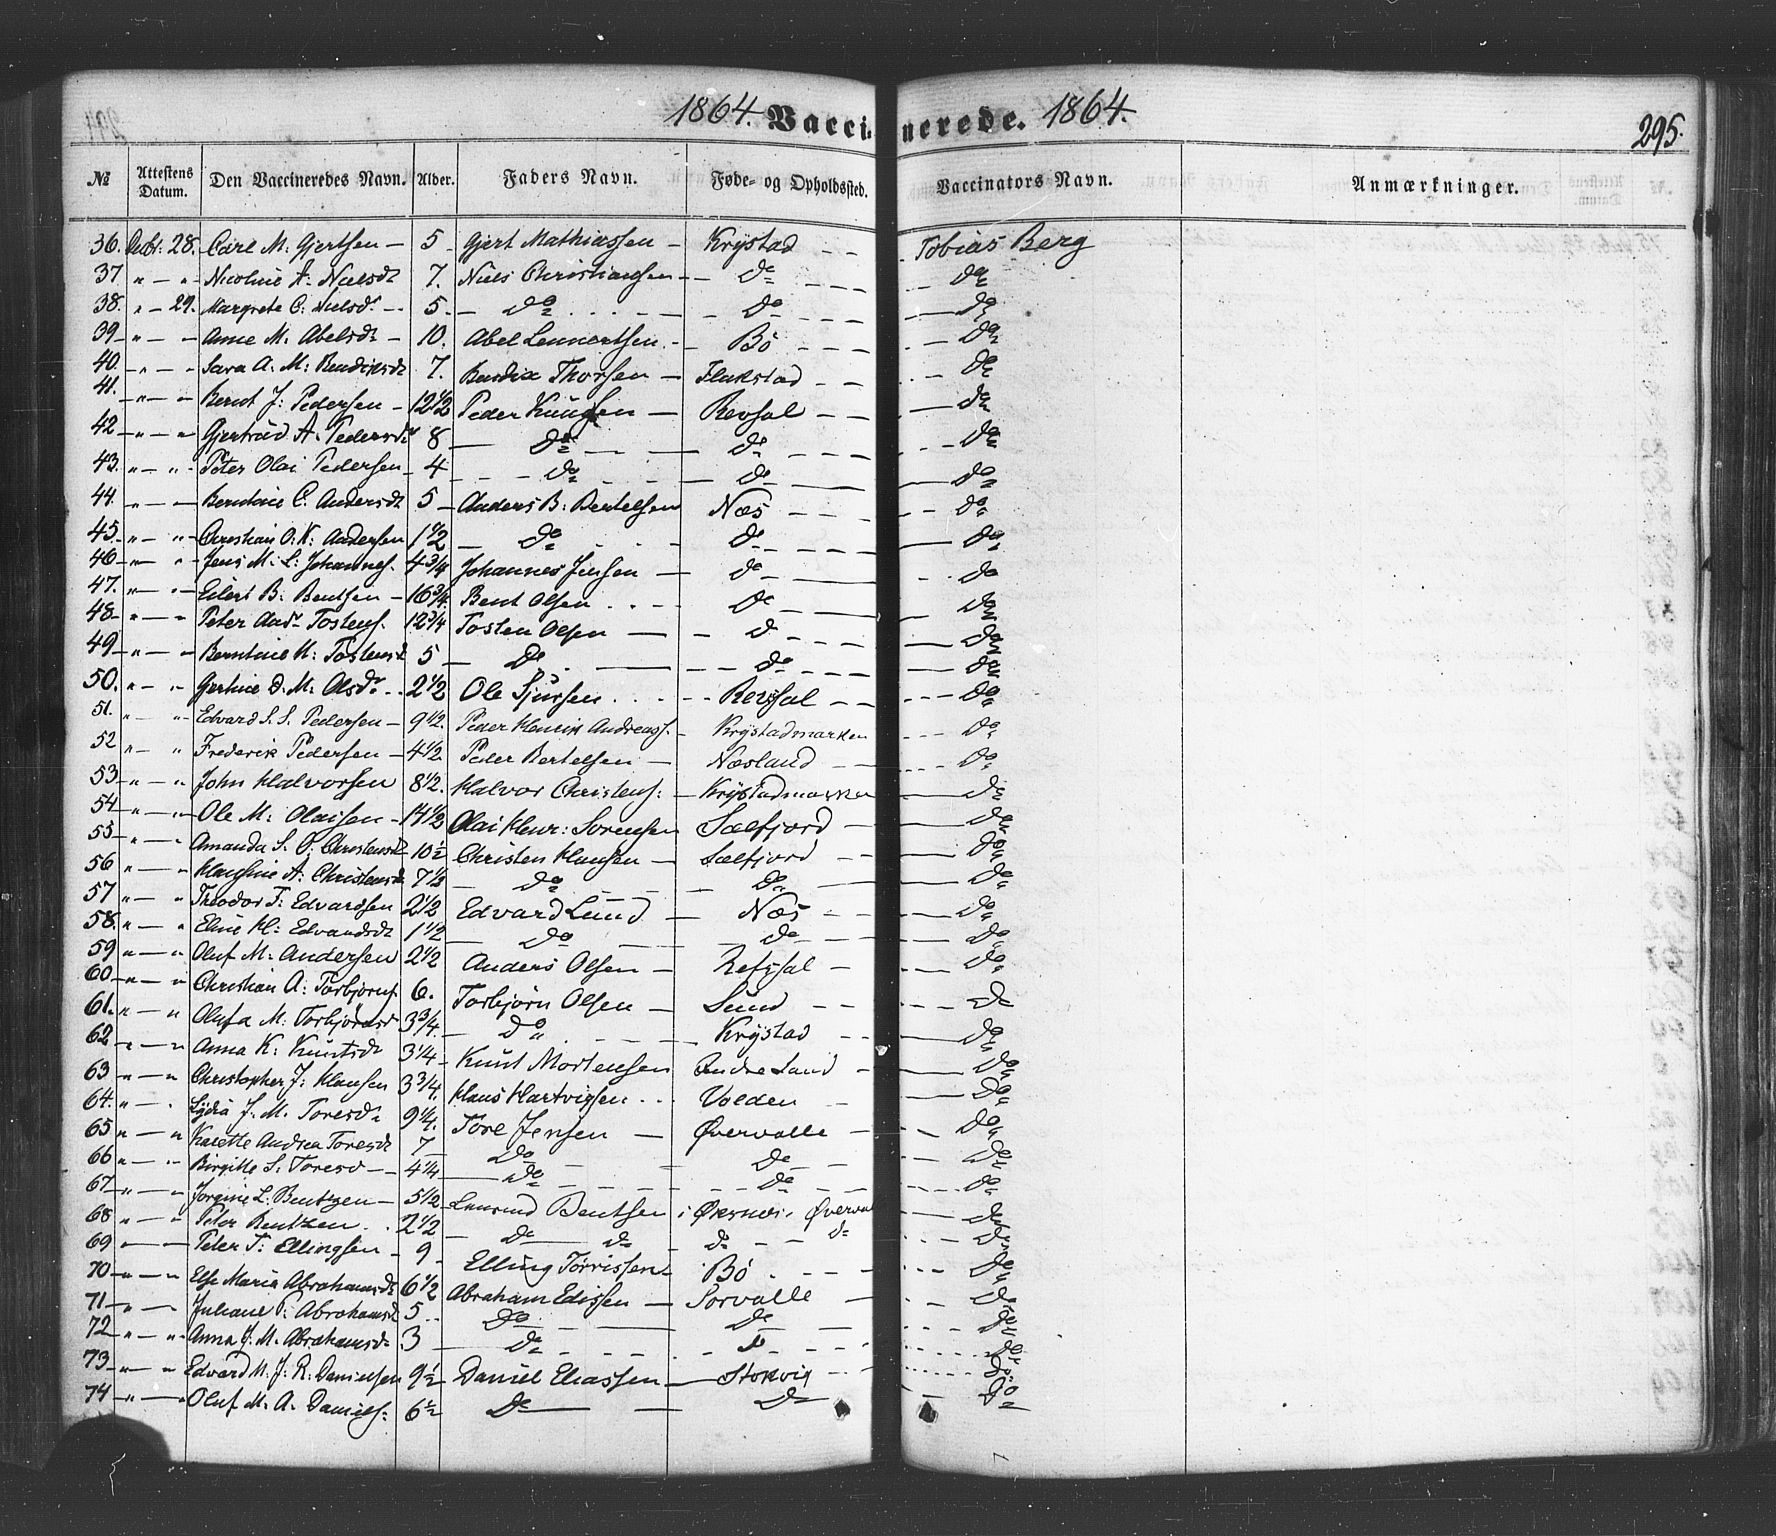 1864. Vaccinerede. 1864. 295.
№ Attestens Datum. Den Vaccineredes Navn. Alder. Faders Navn. Føde- og Opholdssted. Vaccinators Navn. Anmærkninger.
36. 28. Carl M. Gjertsen – 5 – Gjert Mathiassen – Krystad – – Tobias Berg
37 " – " – Nicoline A. Nielsdr 7. Niels Christiansen – do – do
38. " – 29. Margrete C. Nielsdr – 5. – do – do – do
39 " – " Anne M. Abelsdr – 10. Abel Lennertsen – Bø – do
40. " – " Sara A. M. Bendiksdr 7. Bendix Thorsen – Flakstad – – do
41. " – " Bernt J. Pedersen – 12 1/2 Peder Knudsen – Revsal – – do
42 " – " Gjertrud A. Pedersdr 8 – do – do – do
43. " – " Peter Olai Pedersen – 4 – do – do – do
44. " – " Berntine C. Andersdr 5 – Anders B. Bertelsen Næs – – do
45. " – " Christian O. K. Andersen 1 1/2 – do – do – do
46 – " – " Jens M. L. Johannes. 4 3/4 Johannes Jensen – do – do
47. " – " Eilert B. Bentsen – 16 3/4 Bent Olsen – do – do
48 – " – " Peter Andr Tostens. 12 3/4 Tosten Olsen – do – do
49 – " – " Berntine M. Tostensd 5 – do – do – do
50. " – " Gertine D. M. Olsdr – 2 1/2 Ole Sjursen – Revsal – – do
51. " – " Edvard S. S. Pedersen – 9 1/2. Peder Henrik Andreass. – Krystadmarken – do
52 " – " Frederik Pedersen – 4 1/2 Peder Bertelsen – Næsland – – do
53 – " – " John Halvorsen 8 1/2. Halvor Christens: – Krystadmarken – do
54 – " – " Ole M. Olaisen – 14 1/2 Olai Henr: Sørensen Sælfjord – do
55 " – " Amanda S. O. Christensd 10 1/2 Christen Klausen – Sælfjord – – do
56 " – " A. Christensd 7 1/2 – do – do – do
57 " – " Theodor F. Edvardsen 2 1/2 Edvard Lund – Næs – – do
58. " – " Eline H. Edvardsdr 1 1/2 – do – do – do
59 " – " Oluf M. Andersen 2 1/2 Anders Olsen – Refssal – do
60 – " – " Christian A. Torbjørns. 6. Torbjørn Olsen – Sund – – do
61. " – " Olufa M. Torbjørnsd 3 3/4. – do – Krystad – do
62 " – " Anna K. Knutsdr 3 1/4 – Knut Mortensen Indre Sand – do
63 " – " Christopher J. Klausen 3 3/4. Klaus Hartvigsen – Volden – do
64. " – " Lydia J. M. Toresdr 9 1/4. Tore Jensen – Øvervolle – do
65 " – " Karette Andrea Toresdr 7 – do – do – do
66 " – " Birgitte S. Toresd – 4 1/4 – do – do – do
67 – " – " Jorgine L. Bentzen – 5 1/2 – Bentsen i Øksnes. – do
68 " – " Peter Bentzen – 2 1/2 – do – do – do – do – do
69 – – Peter T. Ellingsen – 9 – Elling Tørrissen – Bø – do
70 " – " Else Maria Abrahamsdr 6 1/2 Abraham Edissen – Sørvolle – do
71 " – " Juliane P. Abrahamsd 5 – do – do – do
72 " – " Anna J. M. Abrahamsdr 3 – do – do – do
73 " – " Edvard M. J. R. Danielsen 9 1/2 Daniel Eliassen – Stokvig – do
74 " – " Oluf M. A. Daniels: 6 1/2 – do – do – do